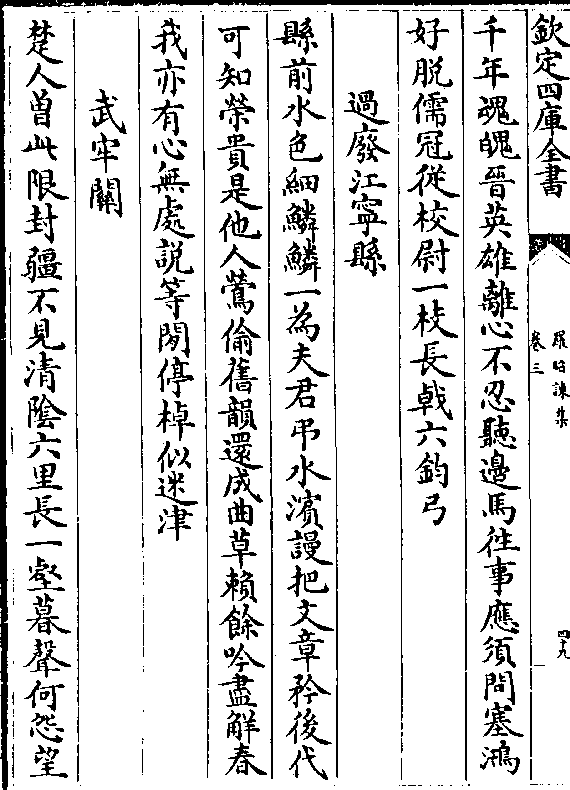 欽定四庫全書
羅昭諫集
卷三
四十九
千年魂魄晉英雄離心不忍聽邊馬往事應須問塞鴻
好脱儒冠從校尉一枝長㦸六鈞弓
過廢江寧縣
縣前水色細鱗鱗一為夫君弔水濱謾把文章矜後代
可知榮貴是他人鶯偷舊韻還成曲草賴餘吟盡解春
我亦有心無處說等閒停棹似迷津
武牢關
楚人曾此限封疆不見清陰六里長一壑暮聲何怨望